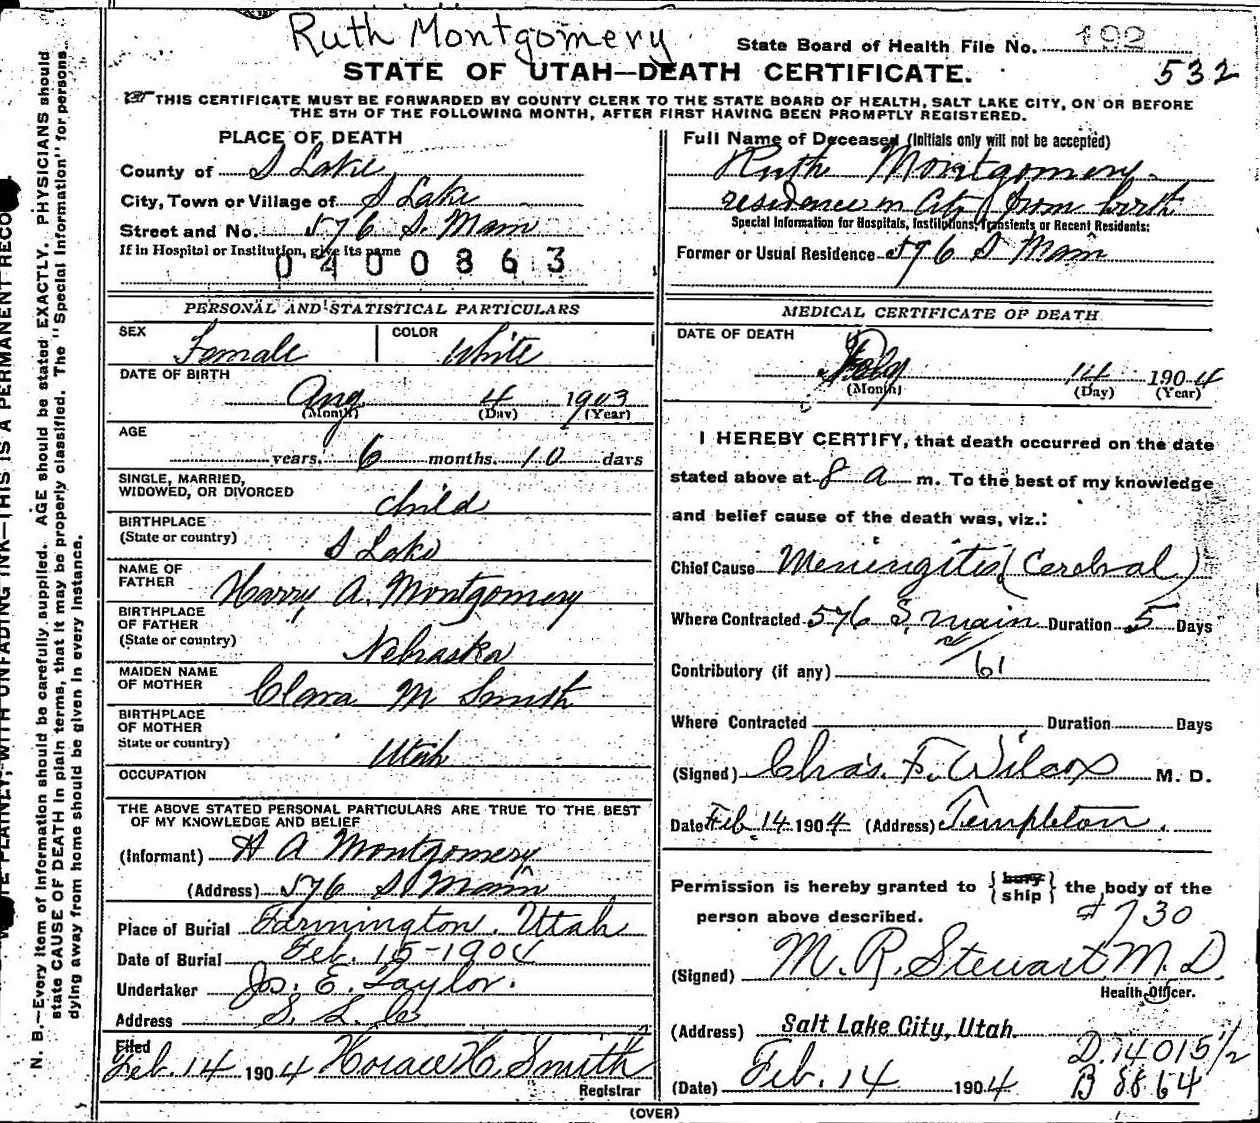 Ruth Montgomery
State Board of Health File No. 192
532
STATE OF UTAH—DEATH CERTIFICATE.
THIS CERTIFICATE MUST BE FORWARDED BY COUNTY CLERK TO THE STATE BOARD OF HEALTH, SALT LAKE CITY, ON OR BEFORE
THE 5TH OF THE FOLLOWING MONTH, AFTER FIRST HAVING BEEN PROMPTLY REGISTERED.
PLACE OF DEATH
County of S Lake
City, Town or Village of S Lake
Street and No. 576 S. Main
If in Hospital or Institution, give its name
0400863
PERSONAL AND STATISTICAL PARTICULARS
SEX Female COLOR White
DATE OF BIRTH
Aug 4 1903
(Month) (Day) (Year)
AGE
years. 6 months. 10 days
SINGLE, MARRIED,
WIDOWED, OR DIVORCED child
BIRTHPLACE
(State or country) S Lake
NAME OF
FATHER Harry A. Montgomery
BIRTHPLACE
OF FATHER
(State or country) Nebraska
MAIDEN NAME
OF MOTHER Clara M Smith
BIRTHPLACE
OF MOTHER
State or country) Utah
OCCUPATION
THE ABOVE STATED PERSONAL PARTICULARS ARE TRUE TO THE BEST
OF MY KNOWLEDGE AND BELIEF
(Informant) H A Montgomery
(Address) 576 S. Main
Place of Burial Farmington, Utah
Date of Burial Feb. 15-1904
Undertaker Jos. E. Taylor.
Address S. L. C
Filed
Feb. 14 1904 Horace H. Smith
Registrar
Full Name of Deceased (Initials only will not be accepted)
Ruth Montgomery
residence in City from birth
Special Information for Hospitals, Institutions, Transients or Recent Residents:
Former or Usual Residence 576 S Main
MEDICAL CERTIFICATE OF DEATH
DATE OF DEATH
14 1904
(Month) (Day) (Year)
I HEREBY CERTIFY, that death occurred on the date
stated above at 8 a m. To the best of my knowledge
and belief cause of the death was, viz.:
Chief Cause Meningitis (Cerebral)
Where Contracted 576 S. Main Duration 5 Days
61
Contributory (if any)
Where Contracted Duration Days
(Signed) Chas. F. Wilcox M. D.
Date Feb. 14 1904 (Address) Templeton.
Permission is hereby granted to { bury ship } the body of the
person above described. #730
(Signed) M. R. Stewart, M. D.
Health Officer.
(Address) Salt Lake City, Utah.
D. 14015 1/2
(Date) Feb. 14 1904 B 88.64
(OVER)
N. B.—Every item of information should be carefully supplied. AGE should be stated EXACTLY. PHYSICIANS should
state CAUSE OF DEATH in plain terms, that it may be properly classified. The "Special Information" for persons
dying away from home should be given in every instance.
PLAINLY, WITH UNFADING INK—THIS IS A PERMANENT RECO